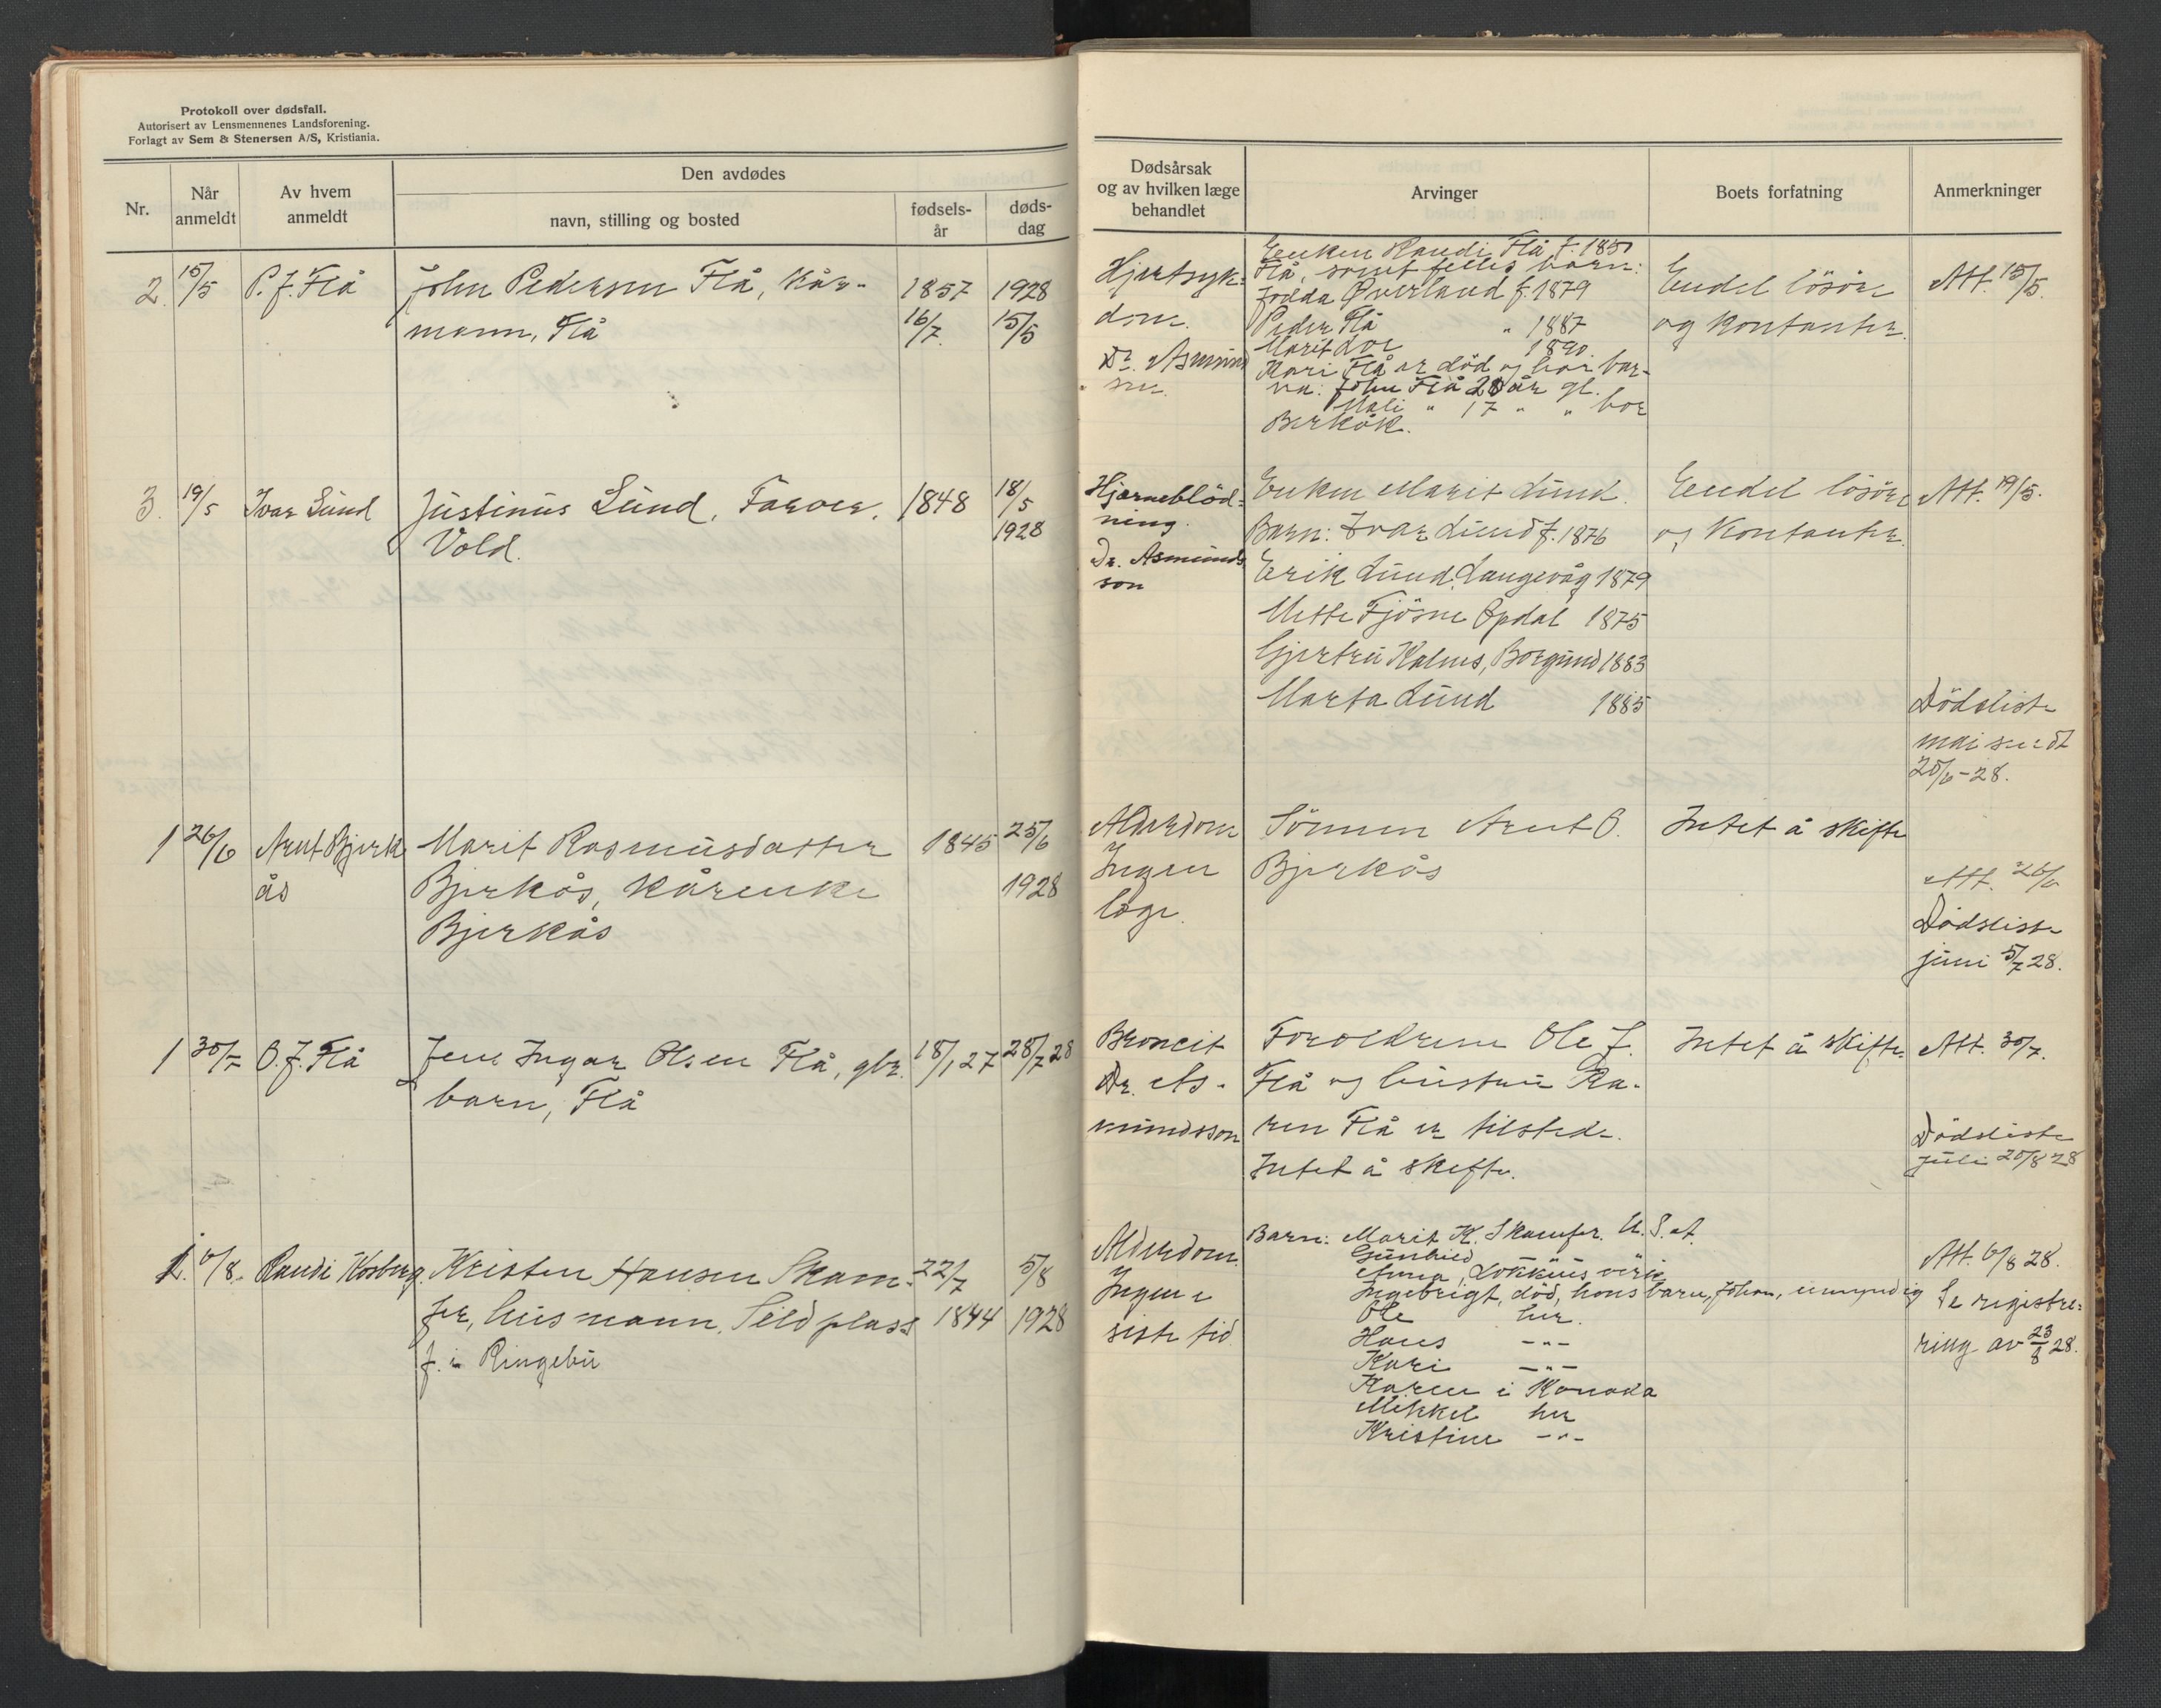 Protokoll over dødsfall.
Autorisert av Lensmennenes Landsforening.
Forlagt av Sem & Stenersen A/S, Kristiania.
Nr.
Når
anmeldt
Av hvem
anmeldt
Den avdødes
navn, stilling og bosted
fødsels-
år
døds-
dag
Dødsårsak
og av hvilken læge
behandlet
Arvinger
Boets forfatning
Anmerkninger
2. 15/5 P. J. Flå John Pedersen Flå, kår- 1857 1928
mann, Flå 16/7. 15/5
Hjertesyk-
dom.
Dr. Asmund
son.
Enken Randi Flå f. 1851
Flå, samt felles barn:
Jodda Øverland f. 1879
Peder Flå " 1887
Marit Loe 1890.
Kari Flå er död og har bar-
na: John Flå 20 år gl.
Mali " 17 " " bor
Berkåk.
Endel lösöre
og kontanter.
Att. 15/5.
3. 19/5 Ivar Lund Justinus Lund, Farver, 1848 18/5
Vold. 1928
Hjerneblöd-
ning.
Dr. Asmunds
son
Enken Marit Lund.
Barn: Ivar Lund f. 1876
Erik Lund, Langevåg 1879
Mette Fjösne Opdal 1875
Gjertru Kalnes, Borgund 1883
Marta Lund 1885
Endel lösöre
og kontanter.
Att. 19/5.
Dödsliste
mai sendt
20/6-28.
1 26/6 Arnt Bjerk Marit Rasmusdatter 1845 25/6
ås Bjerkås, kårenke 1928
Bjerkås
Alderdom
Ingen
læge.
Sönnen Arnt O.
Bjerkås
Intet å skifte
Att. 26/6
Dödsliste
juni 5/7 28.
1 30/7 O. J. Flå Jens Ingar Olsen Flå, gbr. 18/1 27 28/7 28
barn, Flå
Broncit
Dr. As-
mundsson
Foreldrene Ole J.
Flå og hustru Ka-
ren Flå er tilstede.
Intet å skifte.
Intet å skifte.
Att. 30/7.
Dödsliste
juli 20/8 28
1. 6/8. Randi Kosberg. Kristen Hansen Skam- 22/7 5/8
fer, husmann, Sildplass 1844 1928
f. i Ringebu
Alderdom.
Ingen i
siste tid
Barn: Marit K. Skamfer. U. S. A.
Gunhild - " - "
Anna, Løkkens verk
Ingebrigt, död, hans barn, Johan, umyndig
Ole her.
Hans - " -
Kari - " -
Karen i Kanada
Mikkel her
Kristine - " -
Att. 6/8 28.
Se registre-
ring av 23/8 28.